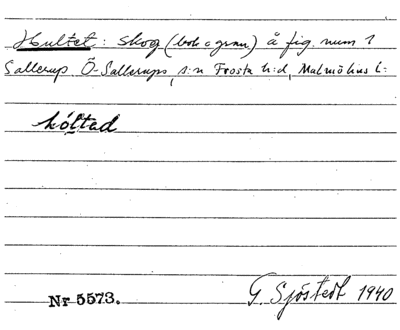 Hultet: skog (bok o gran) å fig. num 1
Sallerup Ö-Sallerups s:n Frosta h:d, Malmöhus l:
hóltad
Nr 5573.
G. Sjöstedt 1940